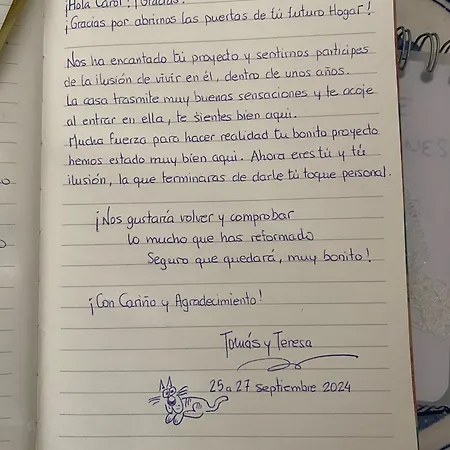 ¡Hola Carol! ¡Gracias!
¡Gracias por abrirnos las puertas de tú futuro Hogar!
Nos ha encantado tú proyedo y sentirnos participes
de la ilusión de vivir en él, dentro de unos años.
La casa trasmite muy buenas sensaciones y te acoje
al entrar en ella, te sientes bien aquí.
Mucha fuerza para hacer realidad tu bonito proyecto
hemos estado muy bien aquí. Ahora eres tú y tú
ilusión, la que terminaras de darle tú toque personal.
¡Nos gustaría volver y comprobar
lo mucho que has reformado
Seguro que quedará, muy bonito!
¡Con Cariño y Agradecimiento!
Tomás y Teresa
25 a 27 Septiembre 2024